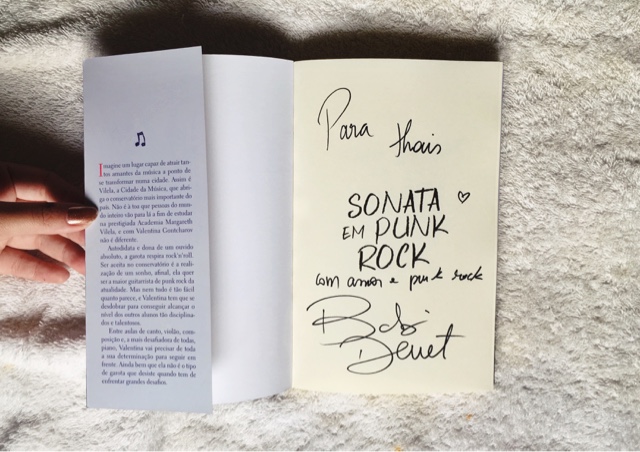 Imagine um lugar capaz de atrair tan-
tos amantes da música a ponto de
se transformar numa cidade. Assim é
Vilela, a Cidade da Música, que abri-
ga o conservatório mais importante do
país. Não é à toa que pessoas do mun-
do inteiro vão para lá a fim de estudar
na prestigiada Academia Margareth
Vilela, e com Valentina Gontcharov
não é diferente.
Autodidata e dona de um ouvido
absoluto, a garota respira rock'n'roll.
Ser aceita no conservatório é a reali-
zação de um sonho, afinal, ela quer
ser a maior guitarrista de punk rock da
atualidade. Mas nem tudo é tão fácil
quanto parece, e Valentina tem que se
desdobrar para conseguir alcançar o
nível dos outros alunos tão disciplina-
dos e talentosos.
Entre aulas de canto, violão, com-
posição e, a mais desafiadora de todas,
piano, Valentina vai precisar de toda
a sua determinação para seguir em
frente. Ainda bem que ela não é o tipo
de garota que desiste quando tem de
enfrentar grandes desafios.
Para thais
SONATA
EM PUNK
ROCK
com amor e punk rock
Babi
Dewet